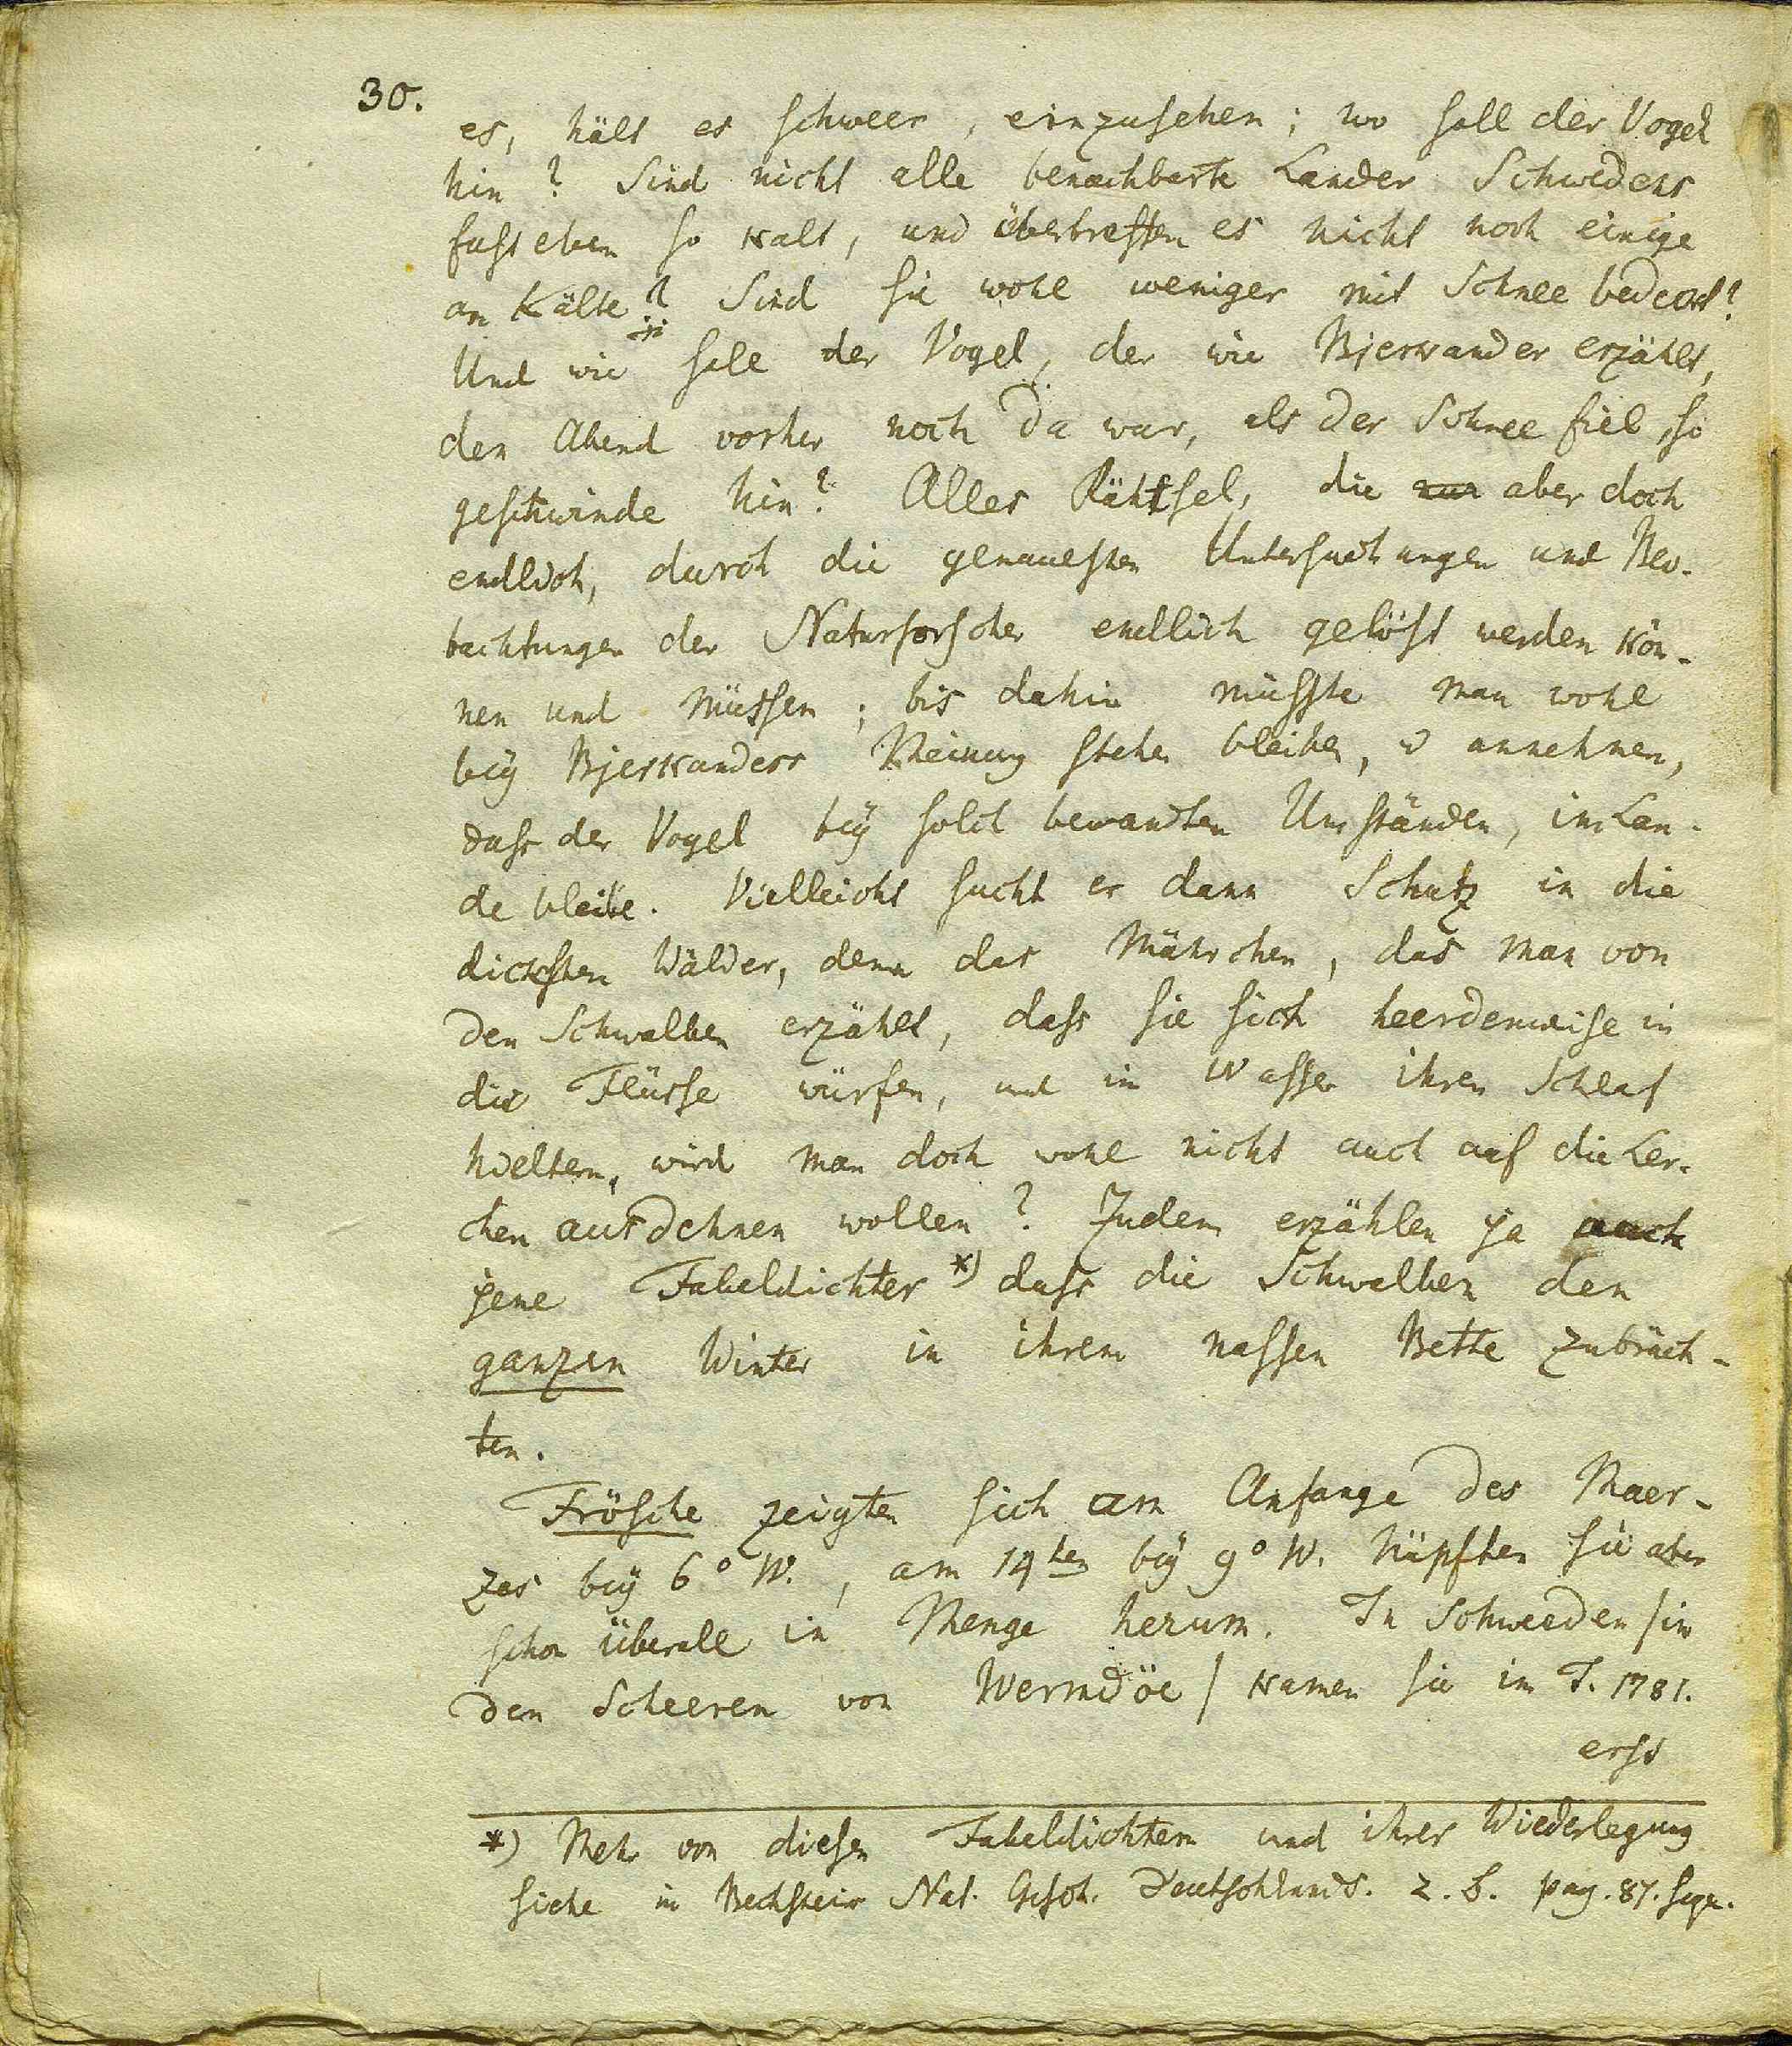 30.
es, hält es schweer, einzusehen; wo soll der Vogel
hin? Sind nicht alle benachbarte Länder Schwedens
fast eben so kalt, und übertreffen es nicht noch einige
an Kälte? Sind sie wohl weniger mit Schnee bedeckt?
Und wie soll der Vogel, der wie Bjerkander erzählt,
den Abend vorher noch da war, als der Schnee fiel, so
geschwinde hin? Alles Räthsel, die nur aber doch
endlich, durch die genauesten Untersuchungen und Beo-
bachtungen der Naturforscher endlich gelöst werden kön-
nen und müssen; bis dahin müsste man wohl
bey Bjerkanders Meinung stehen bleiben, u annehmen,
dass der Vogel bey solch bewandten Umständen, im Lan-
de bleibe. Vielleicht sucht er dann Schutz in die
dicksten Wälder, denn das Mährchen, das man von
den Schwalben erzählt, dass sie sich heerdenweise in
die Flüsse würfen, und im Wasser ihren Schlaf
hielten, wird man doch wohl nicht auch auf die Ler-
chen ausdehnen wollen? Zudem erzählen ja auch
jene Fabeldichter *) dass die Schwalben den
ganzen Winter in ihrem nassen Bette zubräch-
ten.
Frösche zeigten sich am Anfange des Maer-
zes bey 6° W., am 14ten bey 9° W. hüpften sie aber
schon überall in Menge herum. In Schweeden /in
den Scheeren von Wermdöe/ kamen sie im J. 1781.
erst
*) Mehr von diesen Fabeldichtern und ihrer Wiederlegung
siehe in Bechstein Nat. Gesch. Deutschlands. 2. B. pag. 87. seqn.